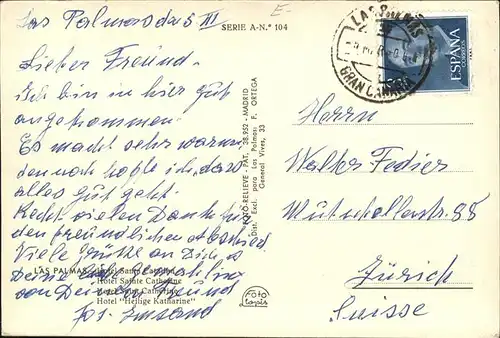 Las Palmas das III
SERIE A-N.º 104
Lieber Freund.
Ich bin in hier gut
angekommen.
Es macht sehr warm
dennoch hoffe ich, dass
alles gut geht.
Recht vielen Dank für
den freundlichen Abschied
Viele Grüsse an Dich &
Deine
von Deinem Freund
Jos. Imsand
LAS PALMAS
Hotel Santa Catalina
Hotel Sainte Catherine
Hotel "Heilige Katharine"
FOTO-RELIEVE - PAT. 38.952 - MADRID
Dist. Excl. para Las Palmas: F. ORTEGA
General Vives, 33
Foto
LAS PALMAS
GRAN CANARIA
ESPAÑA
CORREOS
Herrn
Walter
Mutschellenstr. 88
Zürich
Suisse